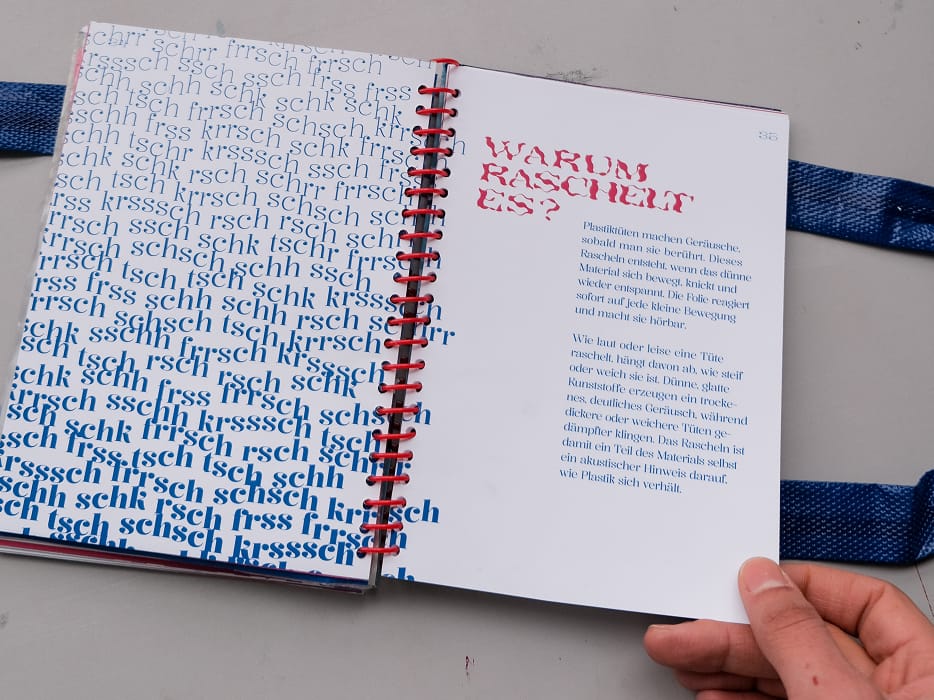 schrr frrsch schh rsch
krsssch ssch ssch frss frss
schh schh schk
tsch frrsch schk schk
frss krrsch schsch krr
schh tsch krsssch ssch
schk schh rsch schrr frrsch
sch tsch krrsch sch
rsch frrsch schsch
krss ssch schk tschr
rrsch tsch schh ssch
rss frss schh tsch schk krsssch
frrsch schsch tsch rsch schrr
schk sschh frrsch krsssch
sch tsch rsch rsch schk
schk schh frss frrsch schsch
sch krrsch sschh krsssch tsch
ssch schk frrsch rsch schk
krsssch frss tsch tsch schh
sch frrsch sschh schk schsch krrsch
tsch schsch frss frrsch
krsssch
35
WARUM
RASCHELT
ES?
Plastiktüten machen Geräusche,
sobald man sie berührt. Dieses
Rascheln entsteht, wenn das dünne
Material sich bewegt, knickt und
wieder entspannt. Die Folie reagiert
sofort auf jede kleine Bewegung
und macht sie hörbar.
Wie laut oder leise eine Tüte
raschelt, hängt davon ab, wie steif
oder weich sie ist. Dünne, glatte
Kunststoffe erzeugen ein trocke-
nes, deutliches Geräusch, während
dickere oder weichere Tüten ge-
dämpfter klingen. Das Rascheln ist
damit ein Teil des Materials selbst
ein akustischer Hinweis darauf,
wie Plastik sich verhält.